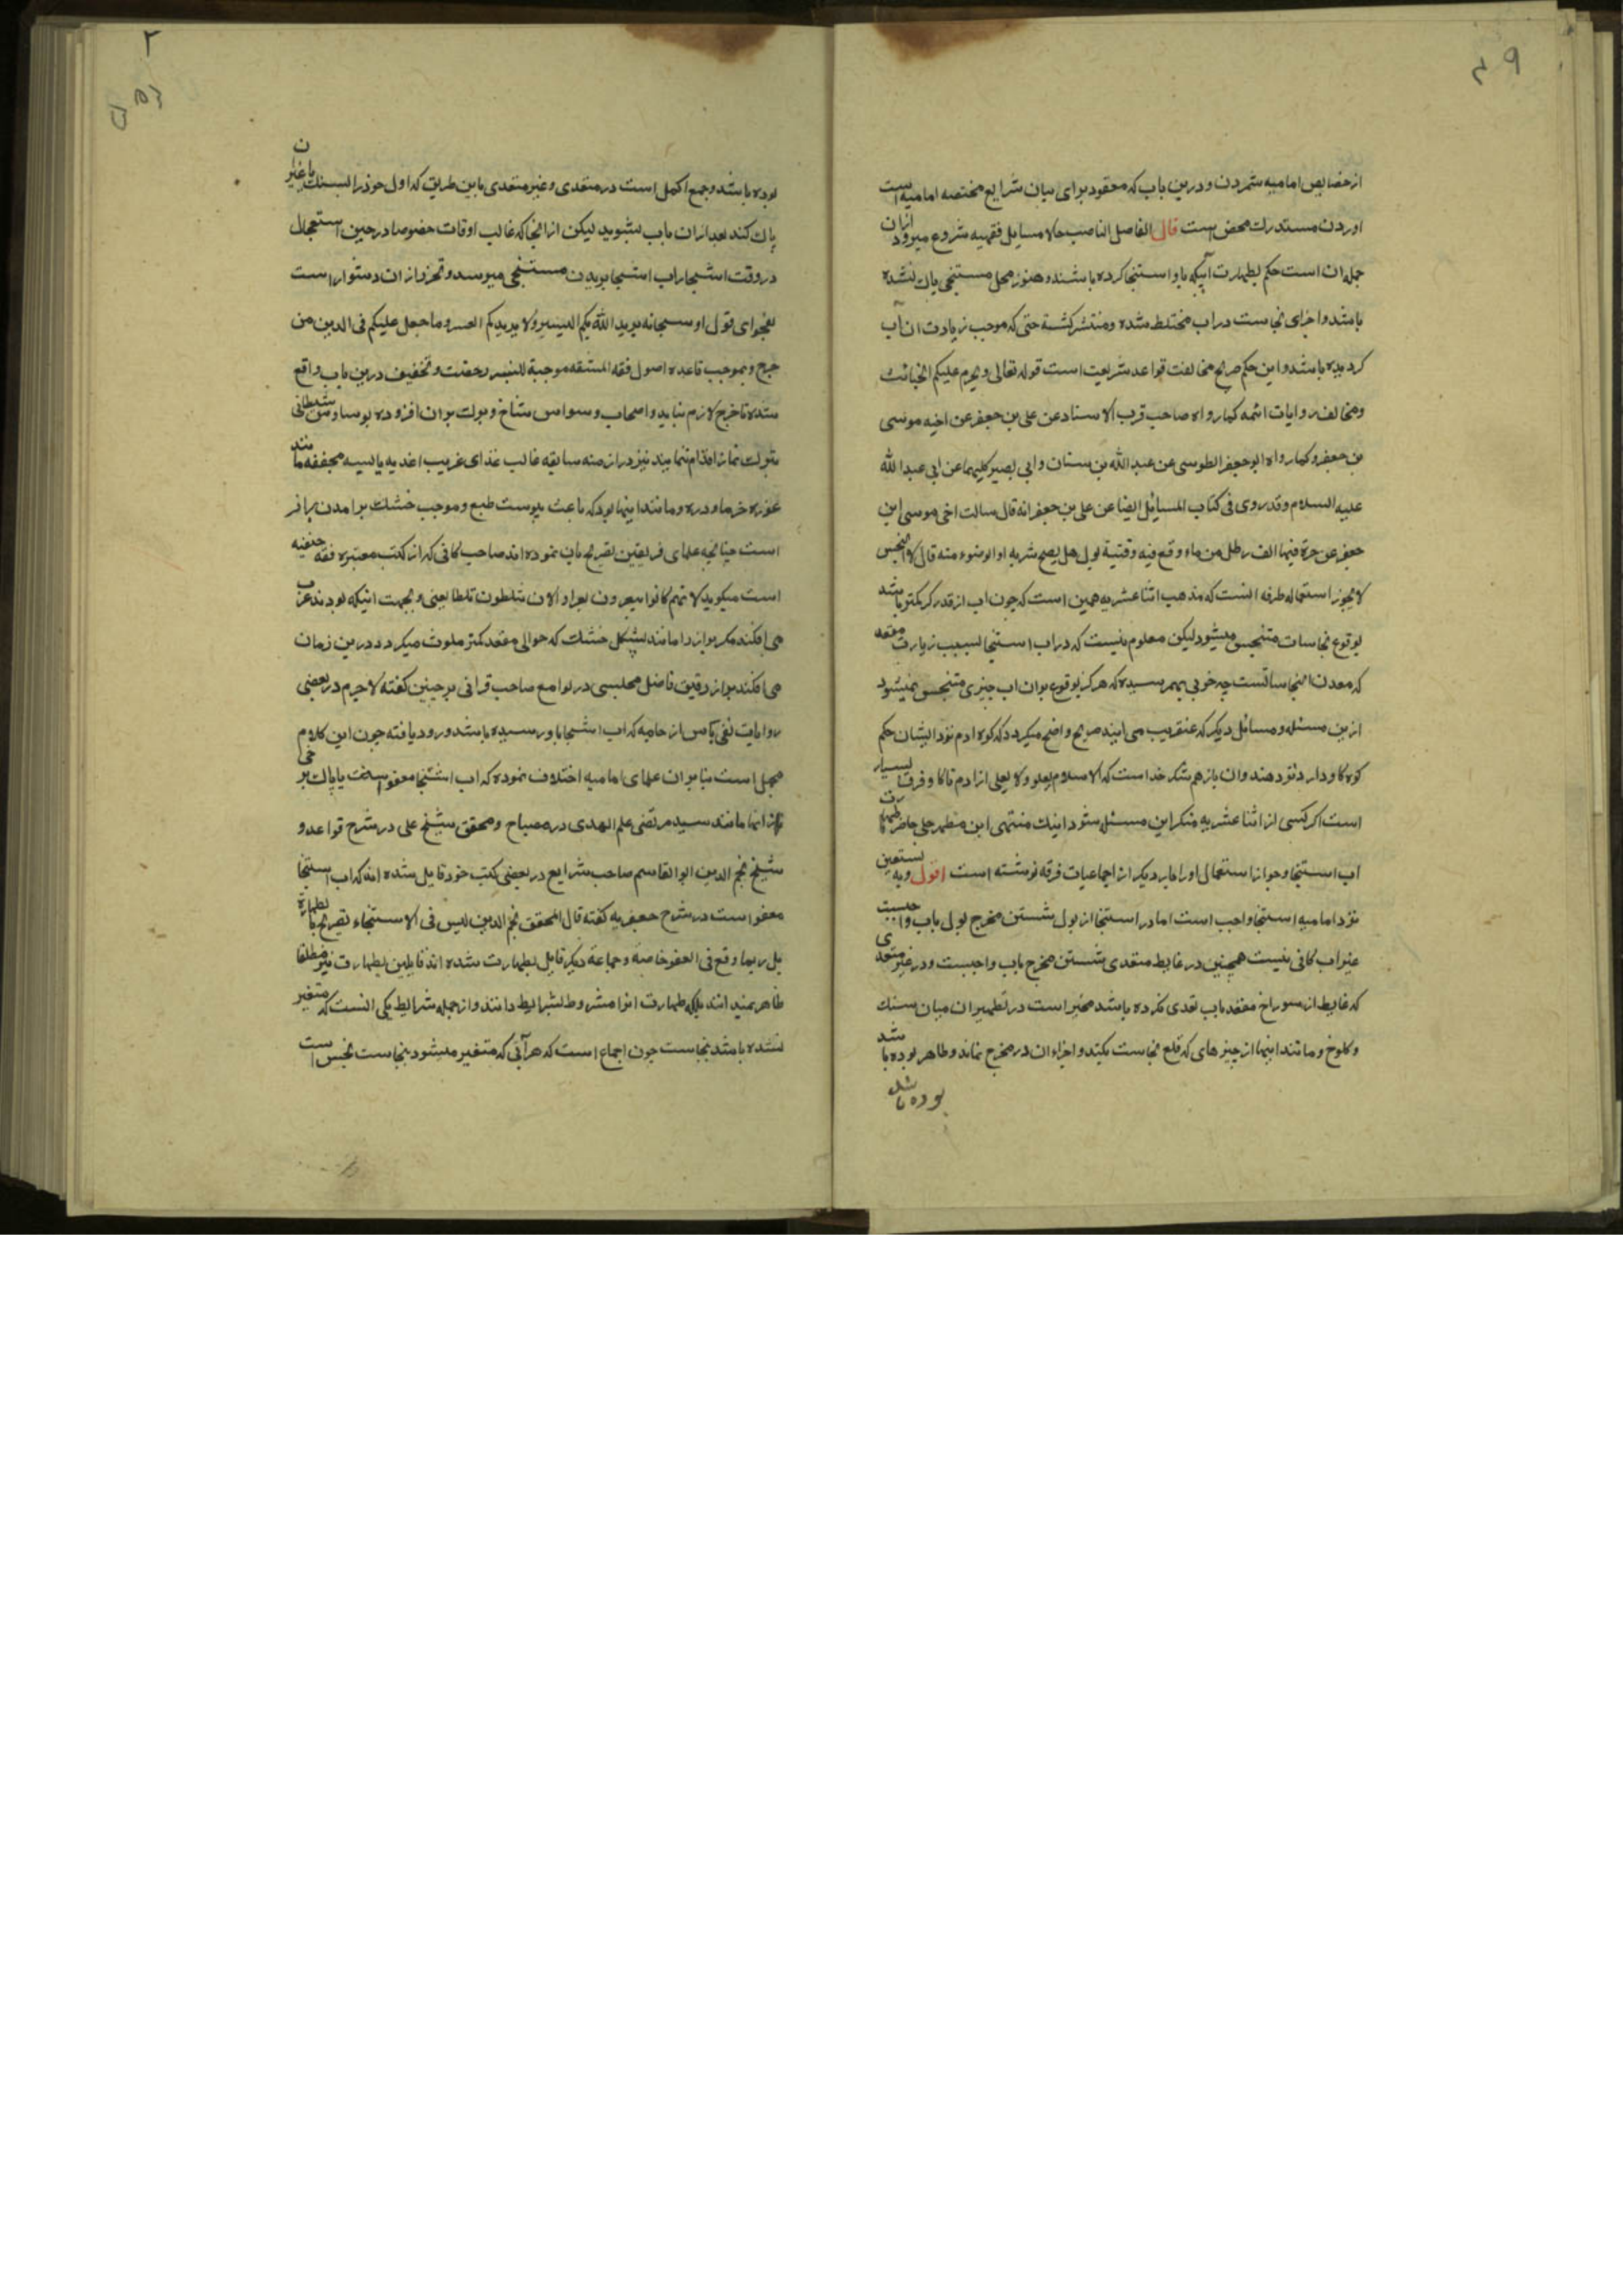 ۴۹
از خصایص امامیه شمردن و درین باب که معقود برای بیان شرایع مختصه امامیه است
اوردن مستدرك محض است قال الفاضل الناصب حالا مسایل فقهیه شروع میرود ازان
جمله ان است حکم بطهارت آبیکه باو استنجا کرده باشند و هنوز محل مستنجی پاك نشده
باشد و اجزای نجاست دراب مختلط شده و منتشر کشته حتی که موجب زیادت ان آب
کردیده باشد و این حکم صریح مخالفت قواعد شریعت است قوله تعالی و یحرم علیکم الخبائث
و مخالف روایات ائمه کما رواه صاحب قرب الاسناد عن علی بن جعفر عن اخیه موسی
بن جعفر و کما رواه ابو جعفر الطوسی عن عبد الله بن سنان و ابی بصیر کلیهما عن ابی عبد الله
علیه السلام و قد روی فی کتاب المسایل ایضا عن علی بن جعفر انه قال سالت اخی موسی ابن
جعفر عن جرة فیها الف رطل من ماء وقع فیه وقیة بول هل یصح شربه او الوضوء منه قال لا النجس
لا یجوز استعماله طرفه انست که مذهب اثنا عشریه همین است که چون اب از قدر کر کمتر باشد
بوقوع نجاسات متنجس میشود لیکن معلوم نیست که دراب استنجا بسبب زیارت مقعد
که معدن نجاساتست چه خوبی بهمرسیده که هرکز بوقوع بران اب چیزی متنجس نمیشود
ازین مسئله و مسائل دیکر که عنقریب می ایند صریح واضح میکردد که کوه ادم نزد ایشان حکم
کوه کاو دارد نزد هندوان باز هم شکر خداست که الاسلام یعلو و لا یعلی از ادم تا کاو فرق بسیار
است اکر کسی از اثنا عشریه منکر این مسئله شود اینك منتهی ابن مطهر حلی حاضر طهارت
اب استنجا و جواز استعمال اورا بار دیکر از اجماعیات فرقه نوشته است اقول و به نستعین
نزد امامیه استنجا واجب است اما در استنجا از بول شستن مخرج بول باب واجبست
غیر اب کافی نیست همچنین در غایط متعدی شستن مخرج باب واجبست و در غیر متعدی
که غایط از سوراخ مقعد باب تعدی نکرده باشد مخیر است در تطهیر ان میان سنك
و کلوخ و مانند اینها از چیزهای که قلع نجاست بکند و اجزاء ان در مخرج نماند و طاهر بوده باشد
بوده باشد
۲
بوده باشد و جمع اکمل است در متعدی و غیر متعدی باین طریق که اول خود را بسنك یا غیر ان
پاك کند بعد ازان باب بشوید لیکن ازانجا که غالب اوقات خصوصا در حین استعجال
در وقت استنجا اب استنجا ببدن مستنجی میرسد و تحرز ازان دشوار است
بفحوای قول او سبحانه یرید الله بکم الیسر و لا یرید بکم العسر و ما جعل علیکم فی الدین من
حرج و بموجب قاعده اصول فقه المشقة موجبة للیسر رخصت و تخفیف درین باب واقع
شده تا حرج لازم نیاید و اصحاب وسواس شاخ و برك بران افزوده بوساوس شیطانی
بترك نماز اقدام ننمایند نیز در ازمنه سابقه غالب غذای عرب اغذیه یابسه مجففه مانند
خرما و ذره و مانند اینها بود که باعث یبوست طبع و موجب خشك برامدن براز
است چنانچه علمای فریقین تصریح بان نموده اند صاحب کافی که از کتب معتبره فقه حنفیه
است میکوید لانهم کانوا یبعرون بعرا و الان یثلطون ثلطا یعنی و بجهت اینکه بودند عرب
می افکند مکر براز را مانند پشکل خشك که حوالی مقعد کمتر ملوث میکردد درین زمان
می افکند براز رقیق فاضل مجلسی در لوامع صاحبقرانی برچنین کفته لاجرم در بعضی
روایات نفی باس از جامه که اب استنجا باو رسیده باشد ورود یافته چون این کلام
مجمل است بنابران علمای امامیه اختلاف نموده که اب استنجا معفو است یا پاك برخی
ازانها مانند سید مرتضی علم الهدی در مصباح و محقق شیخ علی در شرح قواعد و
شیخ نجم الدین ابو القاسم صاحب شرایع در بعضی کتب خود قایل شده اند که اب استنجا
معفو است در شرح جعفریه کفته قال المحقق نجم الدین لیس فی الاستنجاء تصریح بالطهارة
بل ربما وقع فی العفو خاصه و جماعه دیکر قایل بطهارت شده اند قایلین بطهارت نیز مطلقا
طاهر نمیدانند بلکه طهارت انرا مشروط بشرایط دانند و از جمله شرایط یکی انست که متغیر
نشده باشد بنجاست چون اجماع است که هر آبی که متغیر میشود بنجاست نجس است